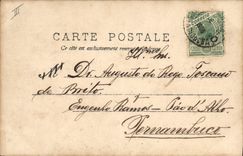 III
CARTE POSTALE
Ce côté est exclusivement réservé à l'adresse
Dr. Augusto do Rego Toscano
de Brito.
Engenho Ramos - Páo d'Alho.
Pernambuco